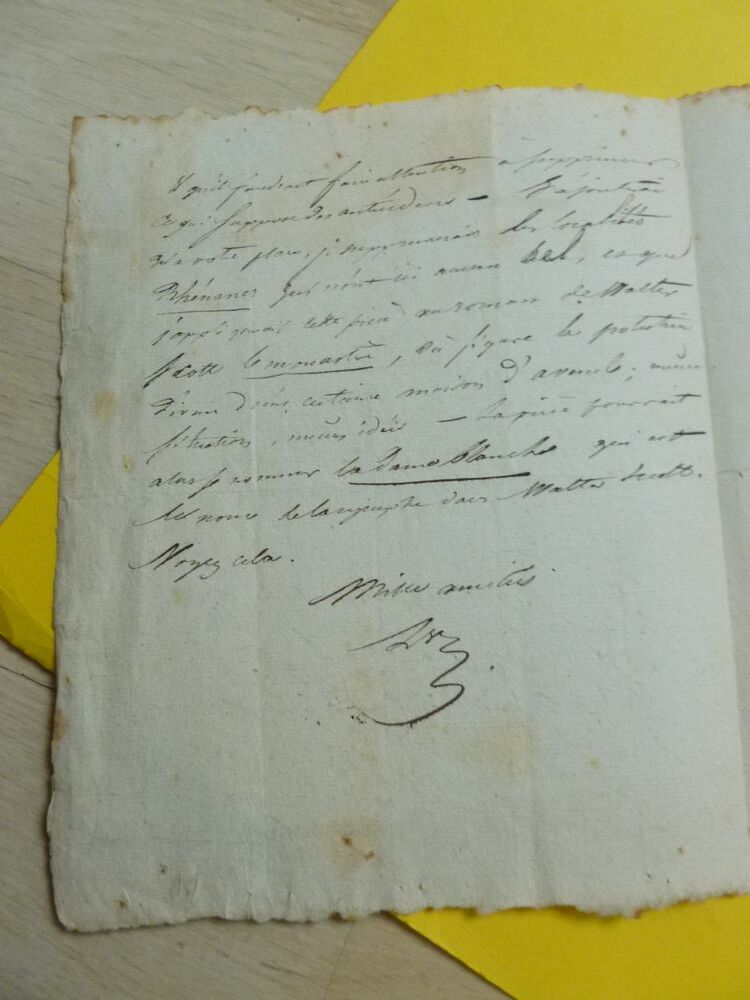 qu'il faudrait faire attention à supprimer
ce qui suppose des antécédens — J'ajouterai
qu'à votre place, je supprimerais les localités
Rhénanes qui n'ont ici aucun sel, et que
cette pièce au roman de Walter
Scott le monastère, où figure la
d'une certaine maison d'avenel; même
situation, même idée — La pièce pourrait
alors se nommer la Dame blanche qui est
le nom de la nymphe dans Walter Scott.
Voyez cela.
Mille amitiés